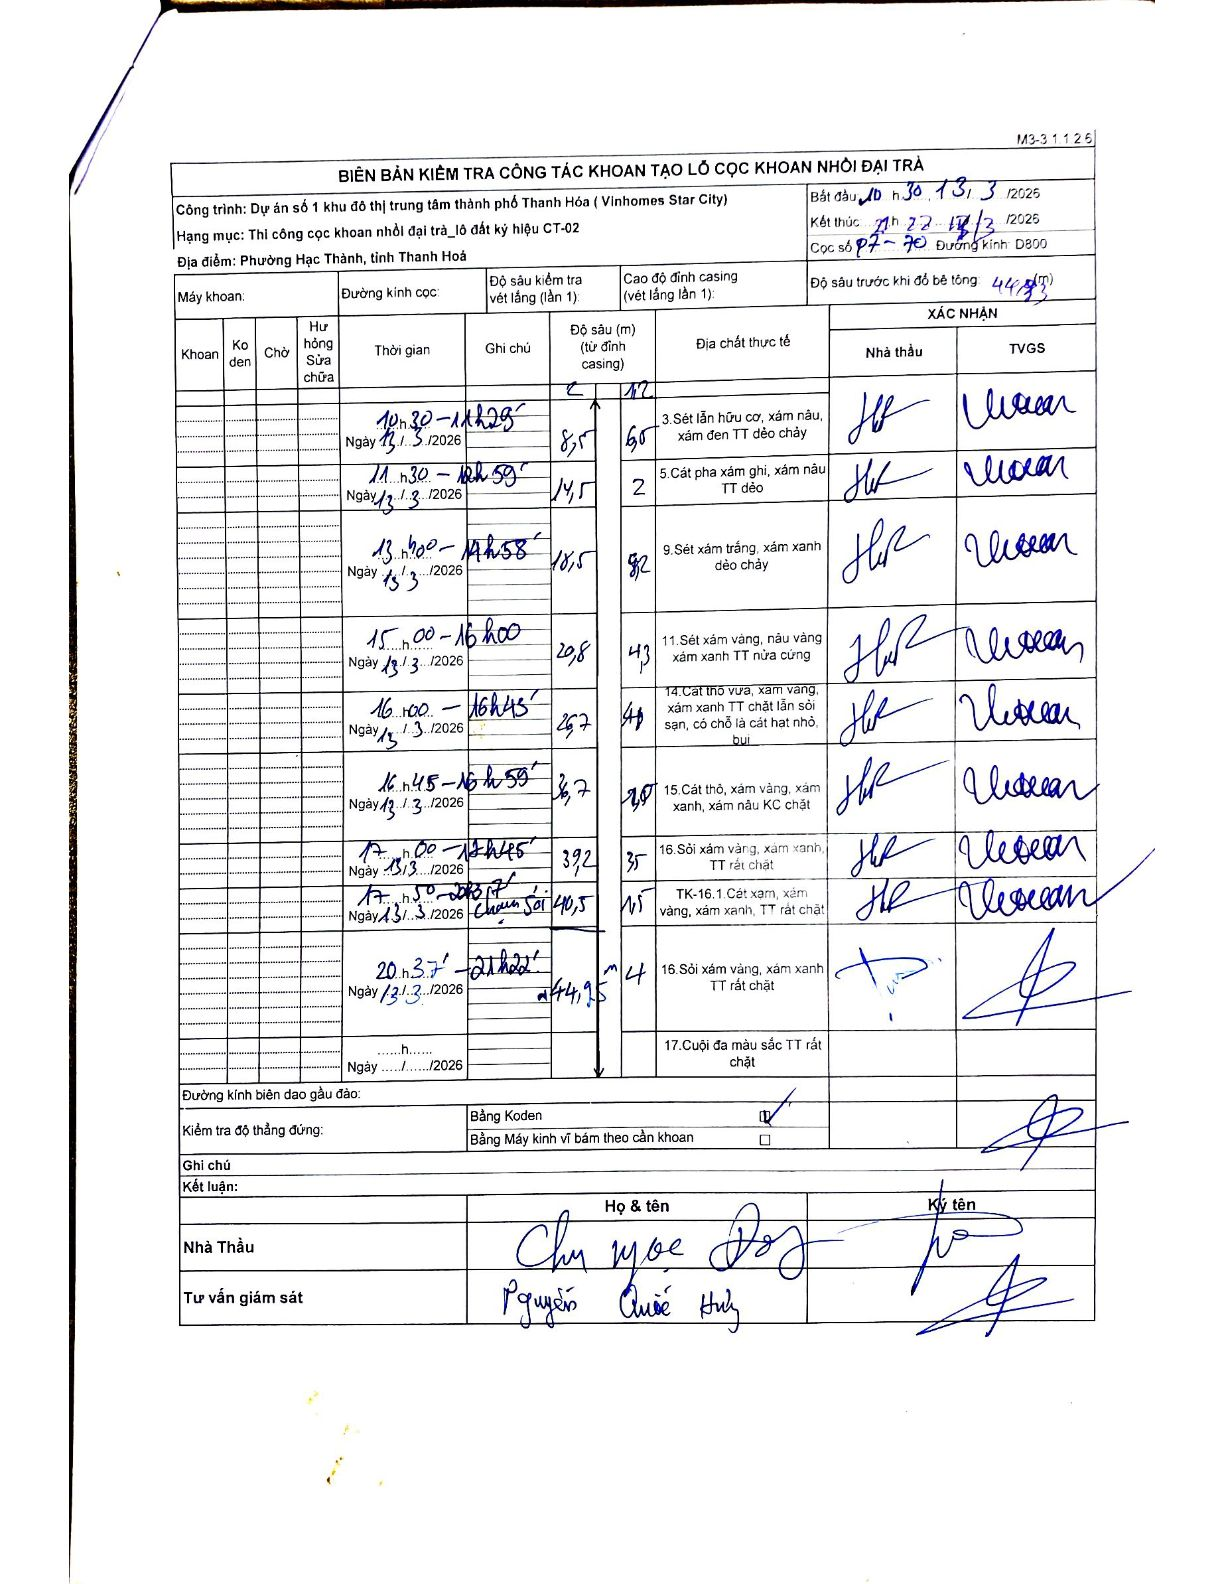 M3-31126
BIÊN BẢN KIỂM TRA CÔNG TÁC KHOAN TẠO LỖ CỌC KHOAN NHỒI ĐẠI TRÀ
Công trình: Dự án số 1 khu đô thị trung tâm thành phố Thanh Hóa ( Vinhomes Star City)
Hạng mục: Thi công cọc khoan nhồi đại trà_lô đất ký hiệu CT-02
Địa điểm: Phường Hạc Thành, tỉnh Thanh Hoá
Bắt đầu 10 h 30, 13/ 3 /2026
Kết thúc 21h 22 /3 /2026
Cọc số P7-70 Đường kính: D800
Máy khoan:
Đường kính cọc:
Độ sâu kiểm tra vét lắng (lần 1):
Cao độ đỉnh casing (vét lắng lần 1):
Độ sâu trước khi đổ bê tông: (m)
Khoan
Ko den
Chờ
Hư hỏng Sửa chữa
Thời gian
Ghi chú
Độ sâu (m) (từ đỉnh casing)
Địa chất thực tế
XÁC NHẬN
Nhà thầu
TVGS
1,2
10h30-11h29'
Ngày 13/.3./2026
8,5
3.Sét lẫn hữu cơ, xám nâu, xám đen TT dẻo chảy
11h30-12h59'
Ngày 13/3/2026
14,5 2
5.Cát pha xám ghi, xám nâu TT dẻo
13h00-14h58'
Ngày 13/3/2026
18,5 8,2
9.Sét xám trắng, xám xanh dẻo chảy
15h00-16h00
Ngày 13/.3./2026
20,8 4,3
11.Sét xám vàng, nâu vàng xám xanh TT nửa cứng
16h00-16h45'
Ngày 13/.3./2026
26,7
14.Cát thô vừa, xám vàng, xám xanh TT chặt lẫn sỏi sạn, có chỗ là cát hạt nhỏ, bụi
16h45-16h59'
Ngày 13/.3./2026
36,7
15.Cát thô, xám vàng, xám xanh, xám nâu KC chặt
17h00-17h45'
Ngày 13/3./2026
39,2 35
16.Sỏi xám vàng, xám xanh, TT rất chặt
17h50-
Ngày 13/.3./2026
40,5 1,5
TK-16.1.Cát xám, xám vàng, xám xanh, TT rất chặt
20h37'-21h22'
Ngày 13/3./2026
44,95 4
16.Sỏi xám vàng, xám xanh TT rất chặt
......h......
Ngày ...../....../2026
17.Cuội đa màu sắc TT rất chặt
Đường kính biên dao gầu đào:
Kiểm tra độ thẳng đứng:
Bằng Koden
Bằng Máy kinh vĩ bám theo cần khoan
Ghi chú
Kết luận:
Họ & tên
Ký tên
Nhà Thầu
Chu Ngọc
Tư vấn giám sát
Nguyễn Quốc Huy